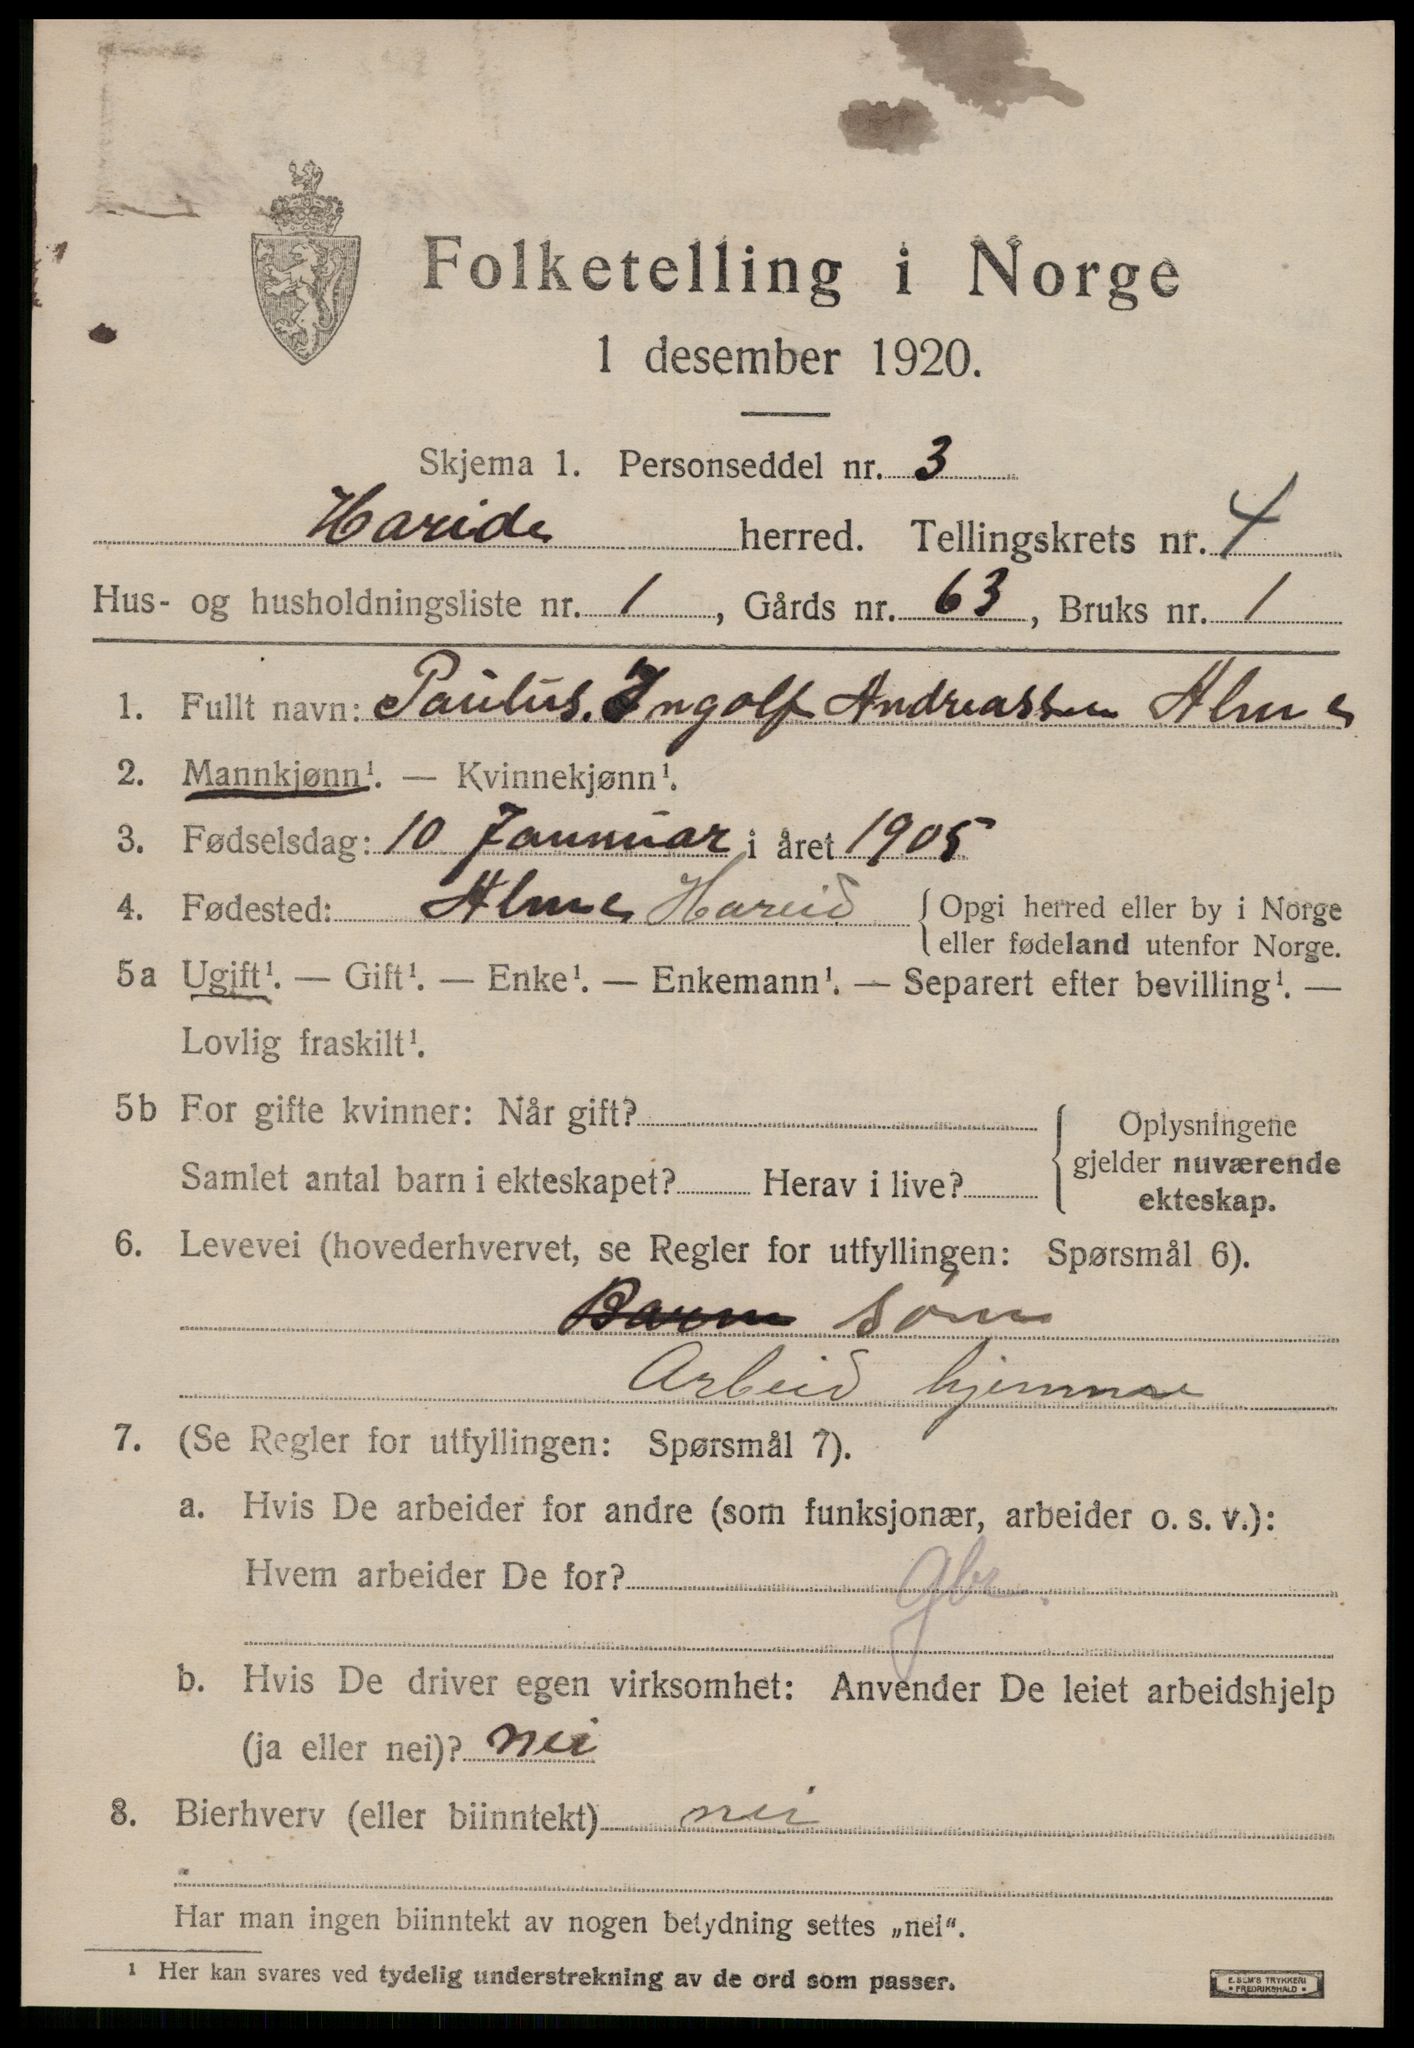 Folketelling i Norge
1 desember 1920.
Skjema 1. Personseddel nr. 3
Haride herred. Tellingskrets nr. 4
Hus- og husholdningsliste nr. 1, Gårds nr. 63, Bruks nr. 1
1. Fullt navn: Paulus. Ingolf Andreassen Alme
2. Mannkjønn¹. — Kvinnekjønn¹.
3. Fødselsdag: 10 Januar i året 1905
4. Fødested: Alme Hareid { Opgi herred eller by i Norge
eller fødeland utenfor Norge.
5a Ugift¹. — Gift¹. — Enke¹. — Enkemann¹. — Separert efter bevilling¹. —
Lovlig fraskilt¹.
5b For gifte kvinner: Når gift?
Samlet antal barn i ekteskapet? Herav i live?
{ Oplysningene
gjelder nuværende
ekteskap.
6. Levevei (hovederhvervet, se Regler for utfyllingen: Spørsmål 6).
Barn søn
Arbeid hjemme
7. (Se Regler for utfyllingen: Spørsmål 7).
a. Hvis De arbeider for andre (som funksjonær, arbeider o. s. v.):
Hvem arbeider De for? Gbr.
b. Hvis De driver egen virksomhet: Anvender De leiet arbeidshjelp
(ja eller nei)? nei
8. Bierhverv (eller biinntekt) nei
Har man ingen biinntekt av nogen betydning settes „nei“.
¹ Her kan svares ved tydelig understrekning av de ord som passer.
E. SEM'S TRYKKERI
* FREDRIKSHALD *